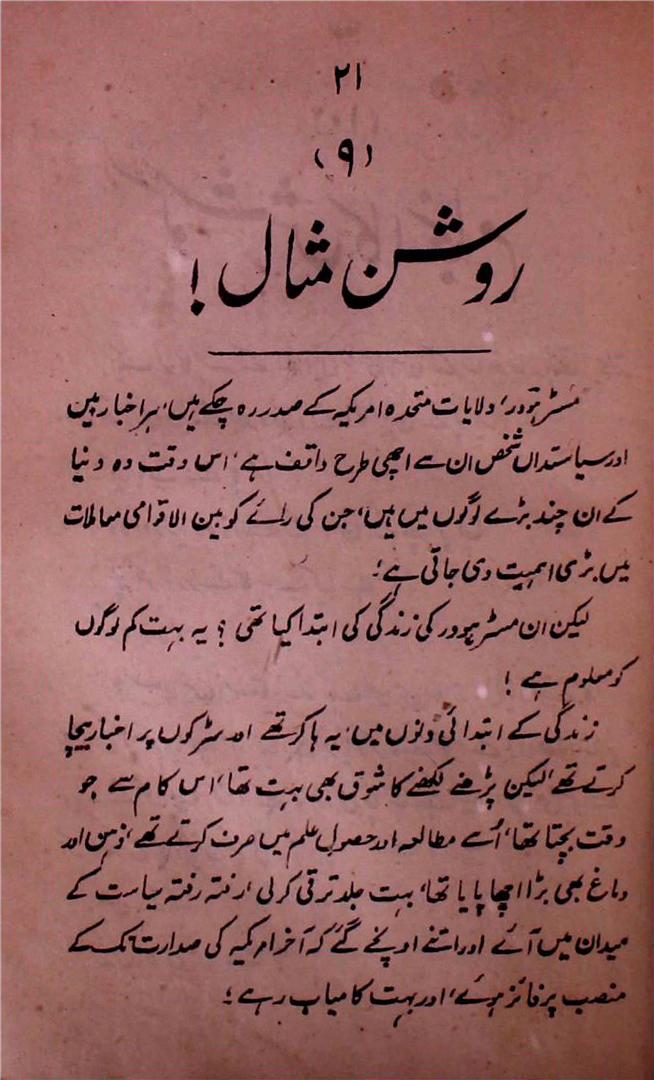 ۲۱
(۹)
روشن مثال!
مسٹر ہوور، ولایات متحدہ امریکہ کے صدر رہ چکے ہیں، ہر اخبار بین
اور سیاستداں شخص ان سے اچھی طرح واقف ہے، اس وقت وہ دنیا
کے ان چند بڑے لوگوں میں ہیں، جن کی رائے کو بین الاقوامی معاملات
میں بڑی اہمیت دی جاتی ہے؛
لیکن ان مسٹر ہوور کی زندگی کی ابتدا کیا تھی؟ یہ بہت کم لوگوں
کو معلوم ہے!
زندگی کے ابتدائی دنوں میں، یہ ہاکر تھے اور سڑکوں پر اخبار بیچا
کرتے تھے، لیکن پڑھنے لکھنے کا شوق بھی بہت تھا، اس کام سے جو
وقت بچتا تھا، اُسے مطالعہ اور حصول علم میں صرف کرتے تھے، ذہن اور
دماغ بھی بڑا اچھا پایا تھا، بہت جلد ترقی کر لی، رفتہ رفتہ سیاست کے
میدان میں آئے اور اتنے اونچے گئے کہ آخر امریکہ کی صدارت تک کے
منصب پر فائز ہوئے، اور بہت کامیاب رہے؛